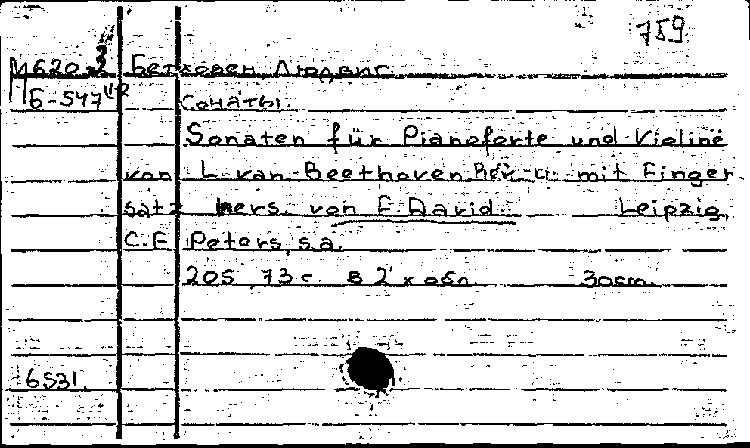 759
М620-2 Бетховен, Людвиг
Б-547
Сонаты.
Sonaten für Pianoforte und Violine
von L. van Beethoven Rev. u. mit Finger-
satz hers. von F. David. Leipzig,
C.F. Peters, s.a.
205, 73 с. В 2х обл. 30cm.
6531.